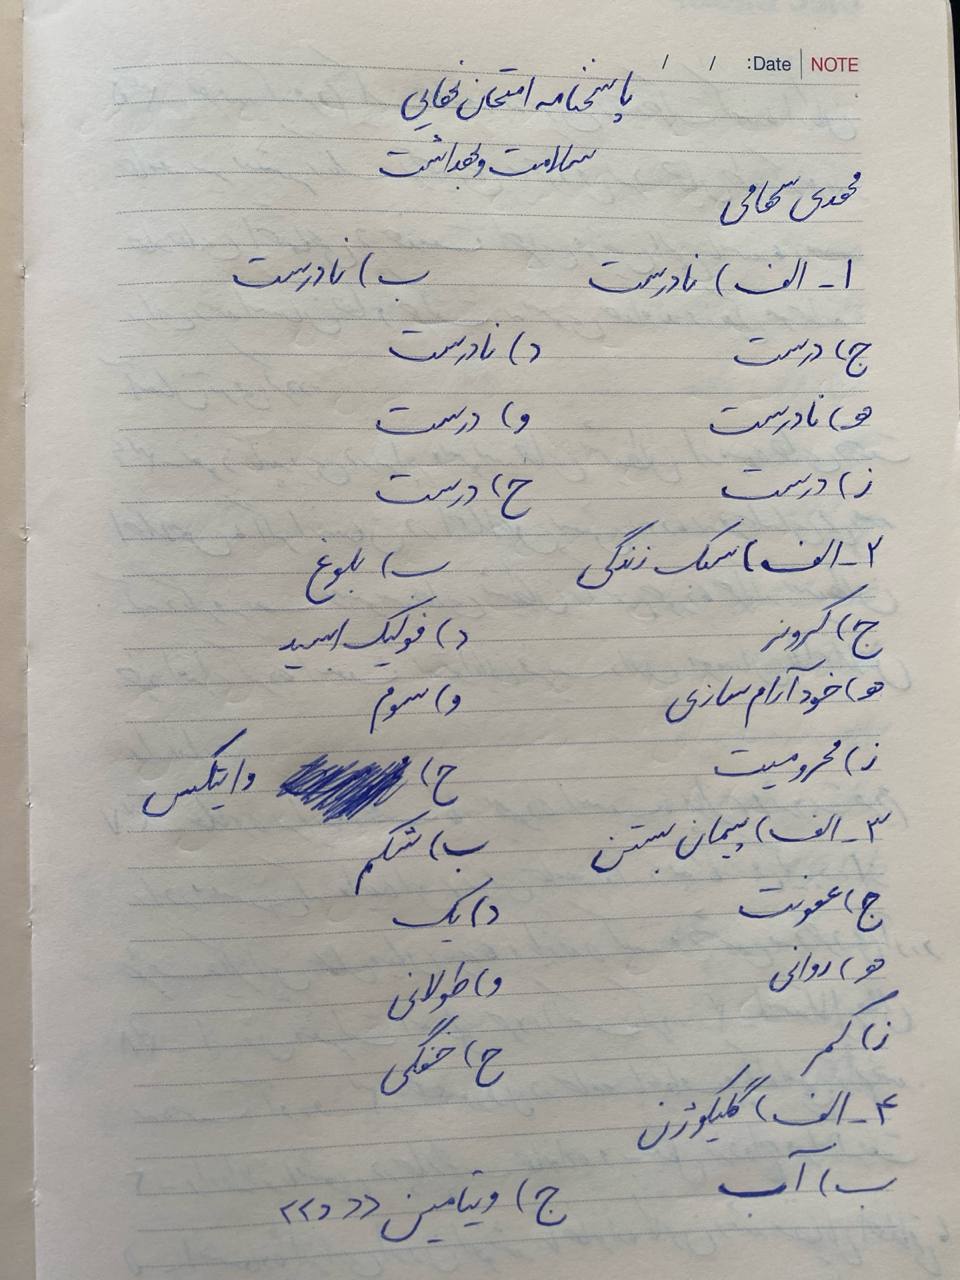 NOTE | Date: / /
پاسخنامه امتحان نهایی
سلامت و بهداشت
مهدی سهامی
۱ـ الف) نادرست ب) نادرست
ج) درست د) نادرست
هـ) نادرست و) درست
ز) درست ح) درست
۲ـ الف) سبک زندگی ب) بلوغ
ج) کروز د) فولیک اسید
هـ) خودآرام سازی و) سوم
ز) محرومیت ح) وایتکس
۳ـ الف) پیمان بستن ب) شکم
ج) عفونت د) یک
هـ) روانی و) طولانی
ز) کم ح) خفگی
۴ـ الف) گلیکوژن
ب) آب ج) ویتامین «د»